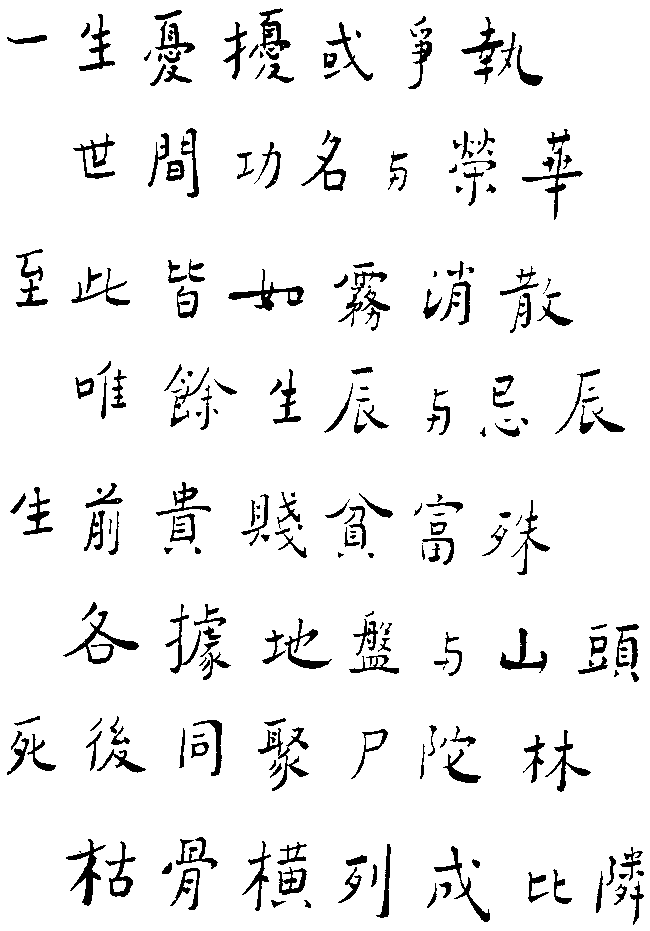 一生憂擾或爭執
世間功名与榮華
至此皆如霧消散
唯餘生辰与忌辰
生前貴賤貧富殊
各據地盤与山頭
死後同聚尸陀林
枯骨橫列成比隣